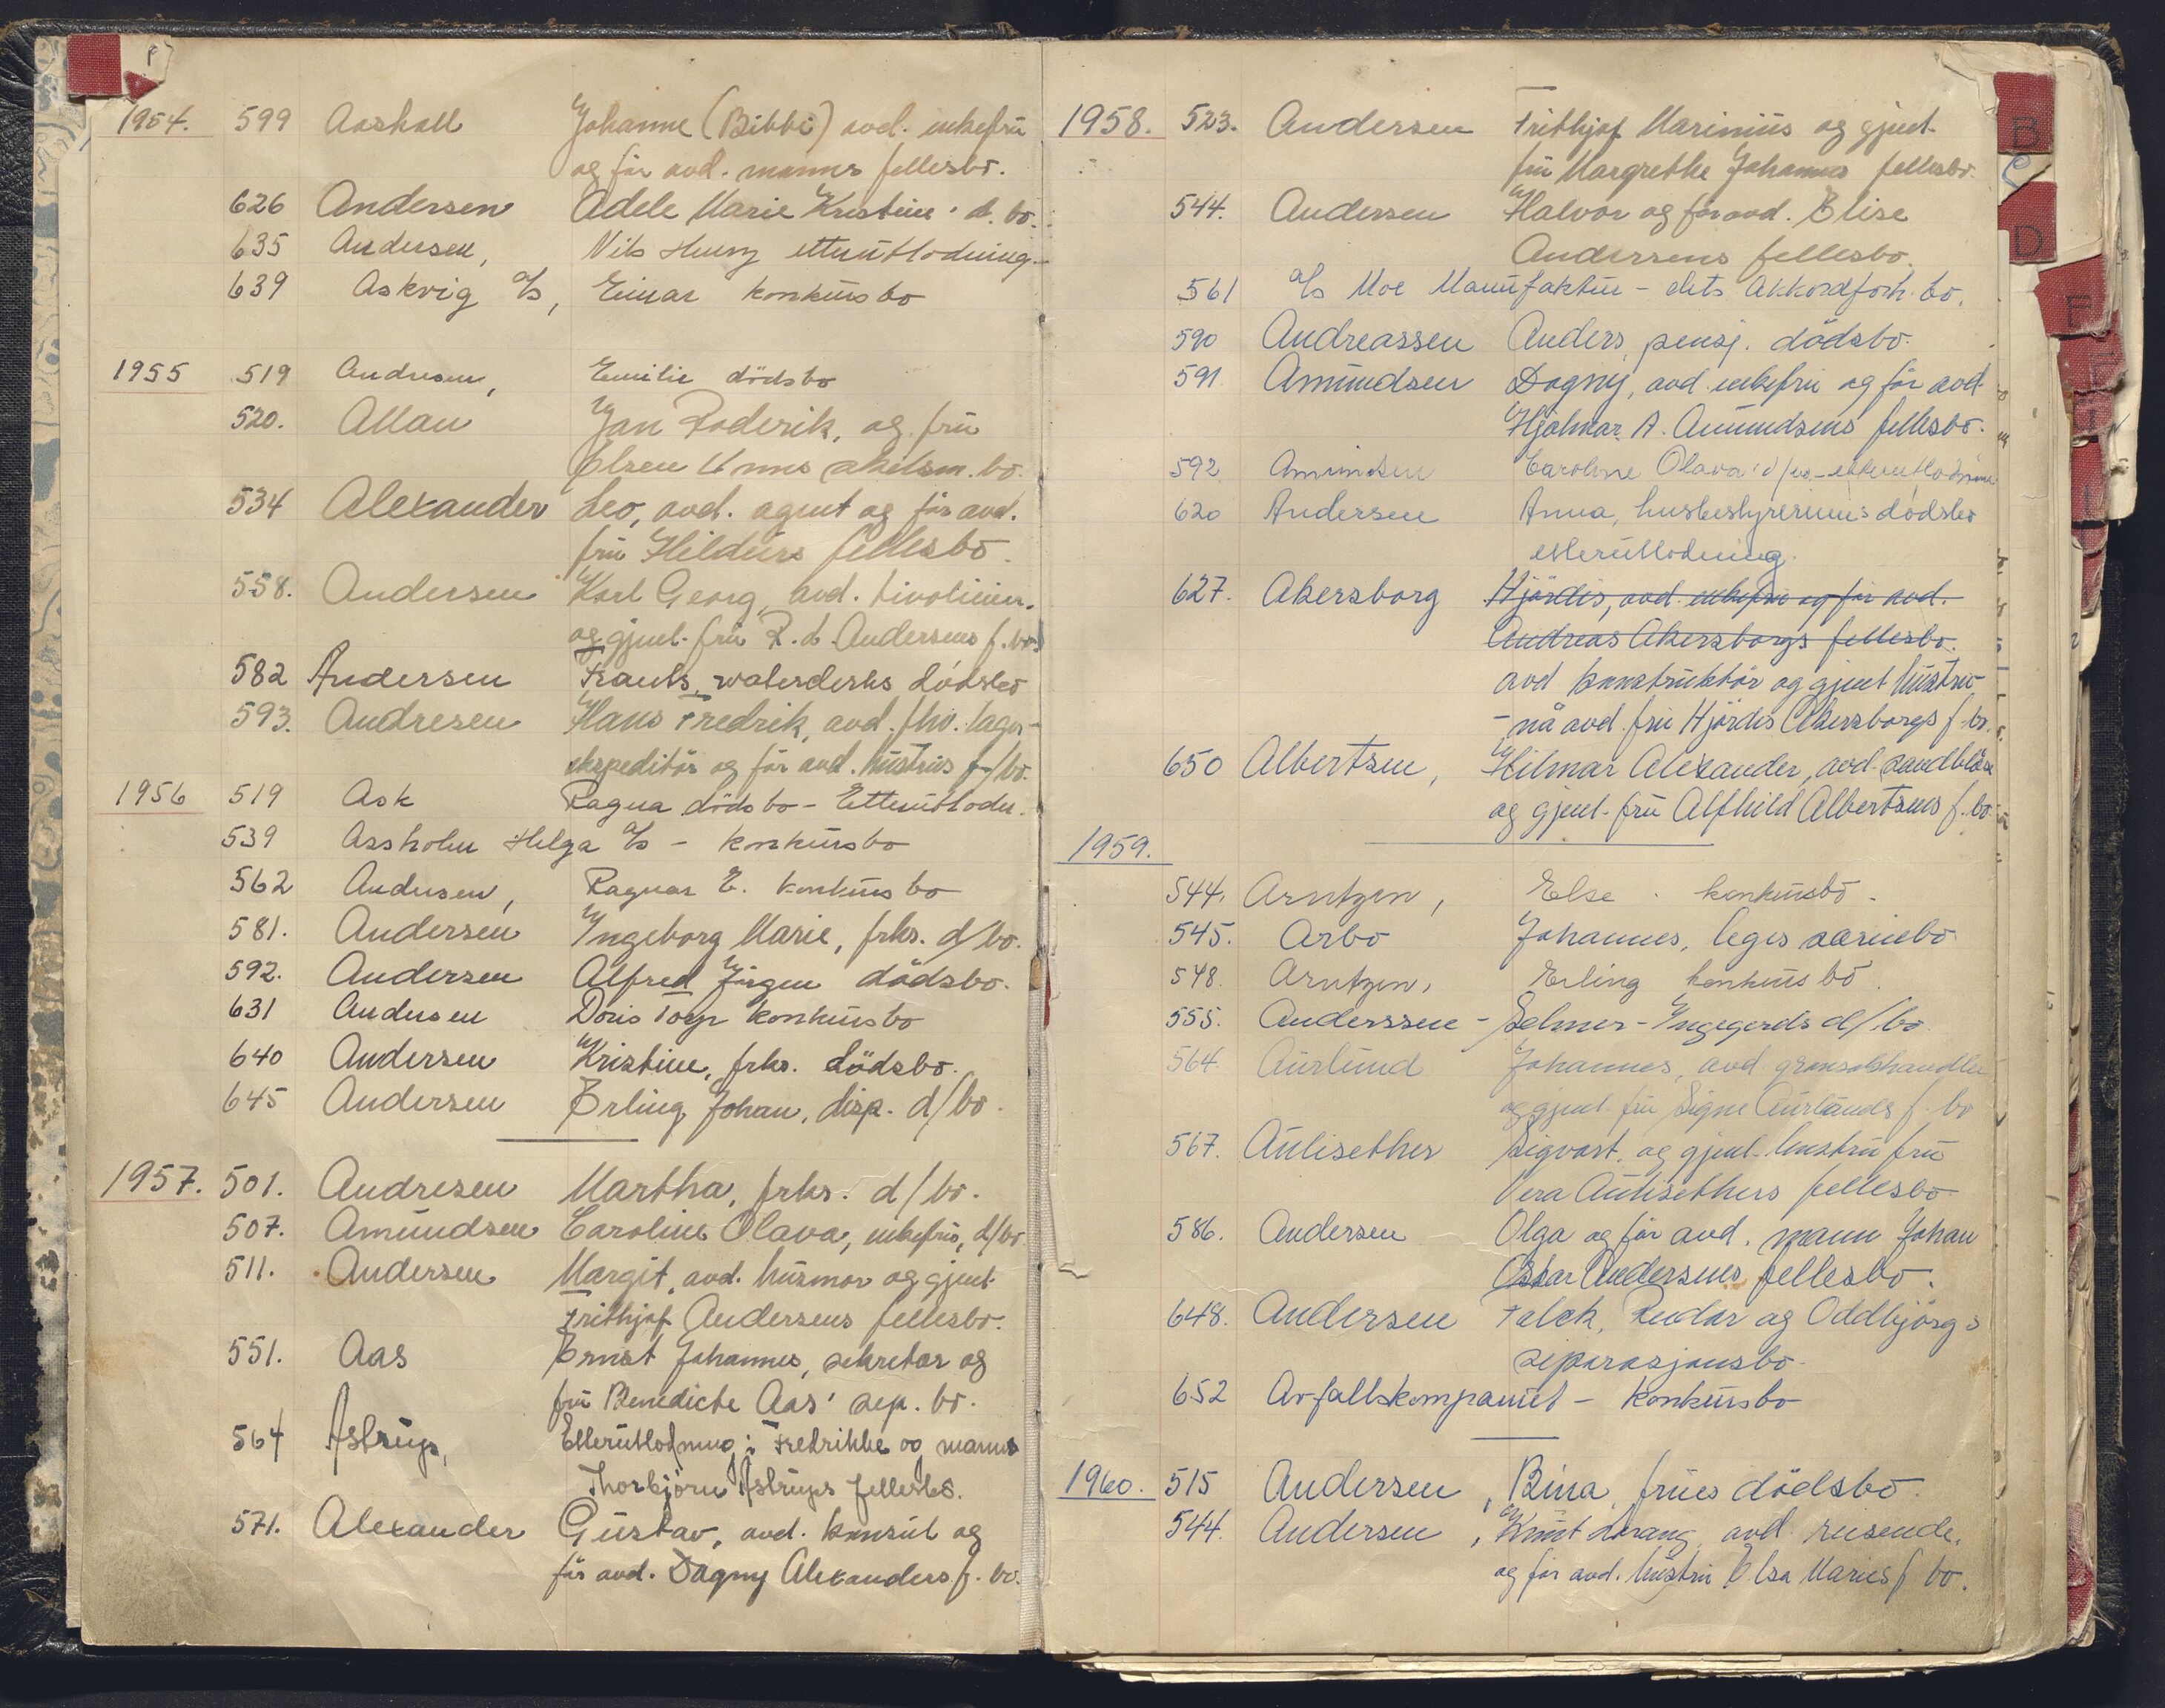 1954. 599 Aaskall Johanne (Bibbi) avd. enkefru
og før avd. manns fellesbo.
626 Andersen Adele Marie Kristine's d. bo.
635 Andersen, Nils Henry etterutlodning.
639 Askvig A/S, Einar konkursbo
1955 519 Andresen, Emilie dödsbo
520. Allan Jan Roderik, og fru
Elsen Unns skilsm. bo.
534 Alexander Leo, avd. agent og før avd.
fru Hildurs fellesbo.
558. Andersen Karl Georg, avd. tivolieier.
og gjenl. fru R. L. Andersens f. bo
582 Andersen Frants, woterclerks dödsbo
593. Andresen Hans Fredrik, avd. fhv. lager-
ekspeditör og før avd. hustrus f/bo.
1956 519 Ask Ragna dödsbo - Etterutlodn.
539 Assholm Helga A/S - konkursbo
562 Andersen, Ragnar E. konkursbo
581. Andersen Ingeborg Marie, frkr. d/bo.
592. Andersen Alfred Jörgen dödsbo.
631 Andersen Doris Torp konkursbo
640 Andersen Kristine, frkr. dödsbo.
645 Andersen Erling Johan, disp. d/bo.
1957. 501. Andresen Martha, frkr. d/bo.
507. Amundsen Caroline Olava, enkefru, d/bo
511. Andersen Margit, avd. husmor og gjenl.
Frithjof Andersens fellesbo.
551. Aas Ernst Johannes, sekretær og
fru Benedicte Aas' sep. bo.
564 Astrup, Etterutlodning i Fredrikke og manns
Thorbjörn Astrups fellesbo.
571. Alexander Gustav, avd. konsul og
før avd. Dagny Alexanders f. bo.
1958. 523. Andersen Frithjof Marinius og gjenl.
fru Margrethe Johannes fellesbo.
544. Andersen Halvor og før avd. Elise
Andersens fellesbo.
561 A/S Moe Manufaktur - dets Akkordforh. bo.
590 Andreassen Anders, pensj. dödsbo.
591 Amundsen Dagny, avd. enkefru og før avd.
Hjalmar A. Amundsens fellesbo.
592 Amundsen Caroline Olava's d/bo - etterutlodning
620 Andersen Anna, husbestyrerinnes dödsbo
etterutlodning.
627. Akersborg Hjördis, avd. enkefru og før avd.
Andreas Akersborgs fellesbo.
avd konstruktör og gjenl hustru
- nå avd. fru Hjördis Akersborgs f. bo.
650 Albertsen, Hilmar Alexander, avd. sandblåser
og gjenl. fru Alfhild Albertsens f. bo.
1959.
544. Arntzen, Else konkursbo.
545. Arbo Johannes, leges særiebo
548. Arntzen, Erling konkursbo.
555. Anderssen - Selmer - Ingegerds d/bo.
564. Aurlund Johannes, avd. grønsakshandler
og gjenl. fru Signe Aurlands f. bo
567. Aulisether Sigvart, og gjenl. hustru fru
Vera Aulisethers fellesbo.
586. Andersen Olga og før avd. mann Johan
Oskar Andersens fellesbo.
648. Andersen Falck, Reidar og Oddbjörgs
separasjonsbo.
652 Avfallskompaniet - Konkursbo
1960. 515 Andersen, Bina, frues dödsbo.
544. Andersen, Knut Lorang, avd. reisende,
og før avd. hustru Elsa Maries f bo.
B
C
D
E
F